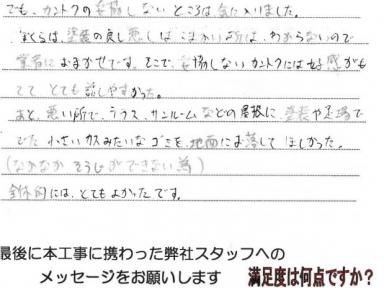 でも、カントクの妥協しないところは気に入りました。
ぼくらは、塗装の良し悪しはこまかい所は、わからないので
業者におまかせです。そこで、妥協しないカントクには好感がも
てて とても話しやすかった。
あと、悪い所で、テラス、サンルームなどの屋根に、塗装や足場で
でた 小さいカスみたいなゴミを、地面にお落して ほしかった。
(なかなか そうじができない為)
全体的には、とてもよかったです。
最後に本工事に携わった弊社スタッフへの
メッセージをお願いします 満足度は何点ですか？